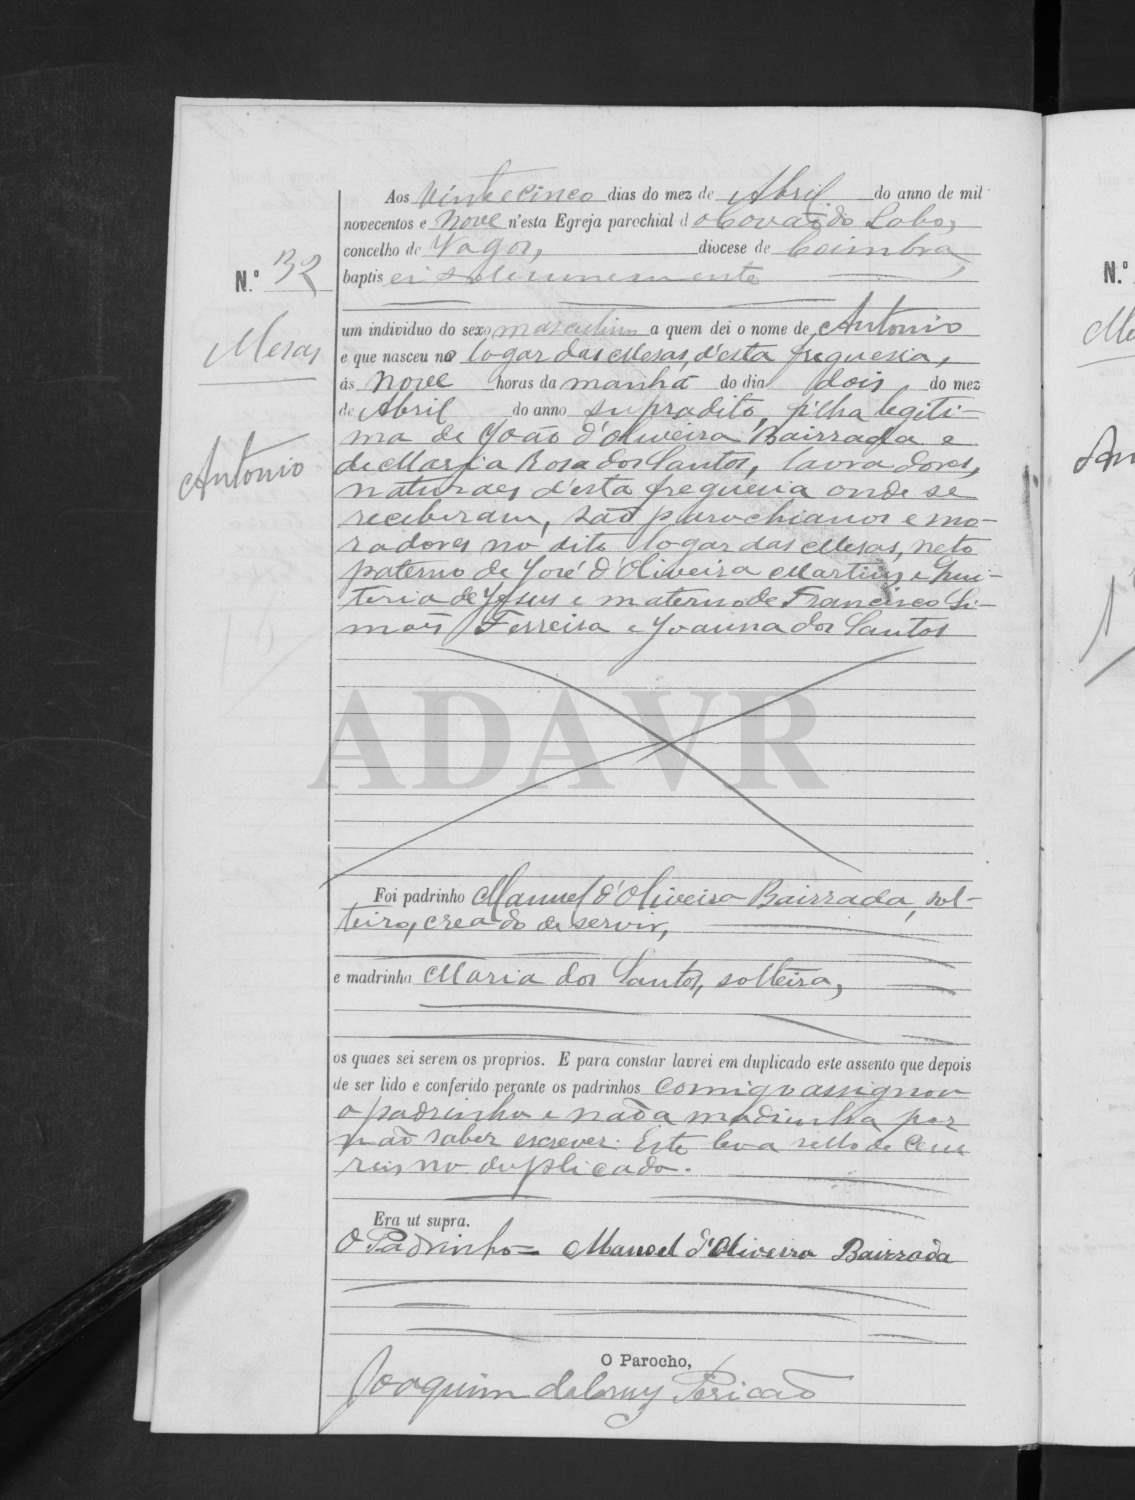 Aos vinte e cinco dias do mez de Abril do anno de mil
novecentos e nove n'esta Egreja parochial d o Covão do Lobo,
concelho de Vagos, diocese de Coimbra,
N.º 32
baptis ei solemnemente
um individuo do sexo masculino a quem dei o nome de Antonio
Mesas
e que nasceu no logar das Mesas, d'esta freguesia,
ás nove horas da manhã do dia dois do mez
de Abril do anno supradito, filha legiti-
ma de João d'Oliveira Bairrada e
Antonio
de Maria Rosa dos Santos, lavradores,
naturaes d'esta freguesia onde se
receberam, são parochianos e mo-
radores no dito logar das Mesas, neto
paterno de José d'Oliveira Martins e Qui-
teria de Jesus e materno de Francisco Si-
mões Ferreira e Joanna dos Santos
ADAVR
Foi padrinho Manuel d'Oliveira Bairrada, sol-
teiro, creado de servir,
e madrinha Maria dos Santos, solteira,
os quaes sei serem os proprios. E para constar lavrei em duplicado este assento que depois
de ser lido e conferido perante os padrinhos comigo assignou
o padrinho e não a madrinha por
não saber escrever. Este leva sello de cem
reis no duplicado.
Era ut supra.
O Padrinho = Manoel d'Oliveira Bairrada
O Parocho,
Joaquim da Cruz Pericão
N.º